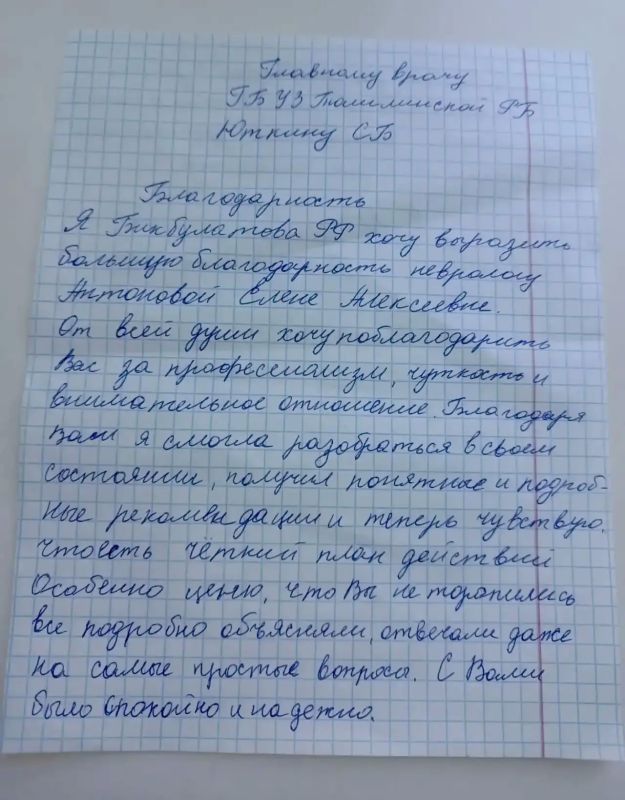 Главному врачу
ГБУЗ Толмлинской РБ
Юткину СБ
Благодарность
Я Бикбулатова РФ хочу выразить
большую благодарность неврологу
Антоновой Елене Алексеевне.
От всей души хочу поблагодарить
Вас за профессионализм, чуткость и
внимательное отношение. Благодаря
Вам я смогла разобраться в своем
состоянии, получил понятные и подроб-
ные рекомендации и теперь чувствую.
что есть чёткий план действий
Особенно ценю, что Вы не торопились
все подробно объясняли, отвечали даже
на самые простые вопросы. С Вами
было спокойно и надежно.